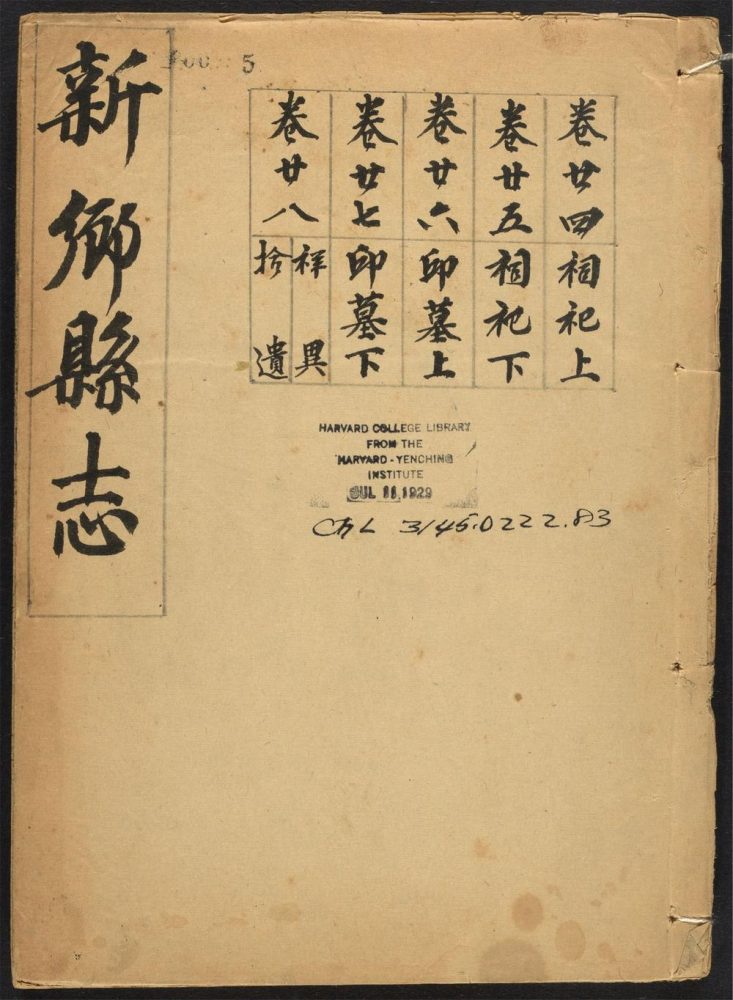 新鄉縣志
卷廿四 祠祀上
卷廿五 祠祀下
卷廿六 邱墓上
卷廿七 邱墓下
卷廿八 祥異
拾遺
5
HARVARD COLLEGE LIBRARY
FROM THE
HARVARD-YENCHING
INSTITUTE
JUL 11 1929
Ch L 3145.0222.83